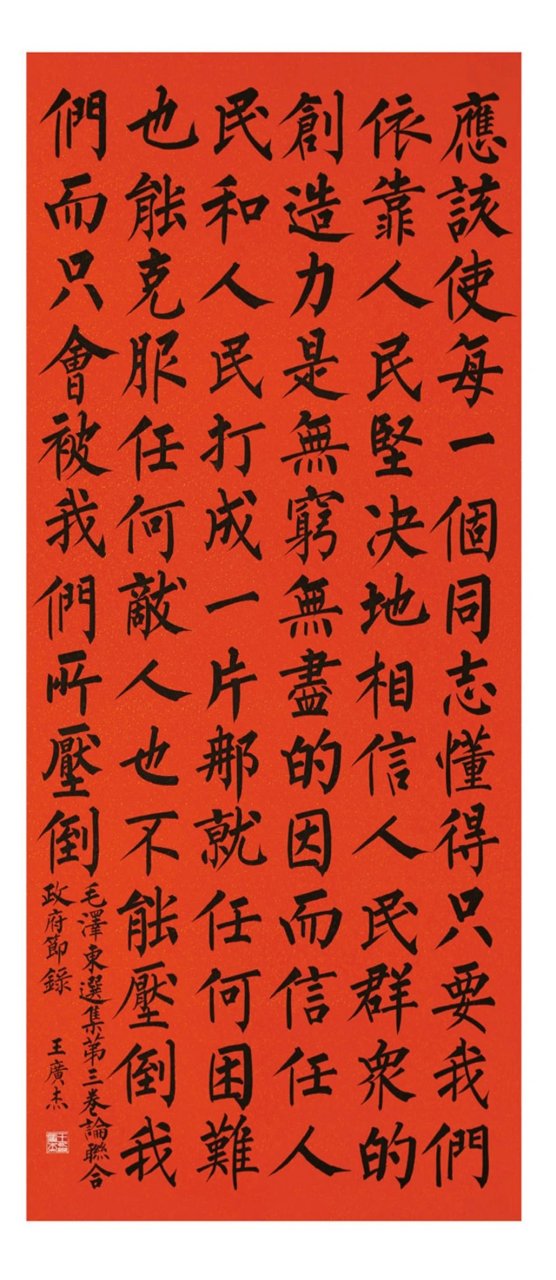 應該使每一個同志懂得只要我們
依靠人民堅決地相信人民群衆的
創造力是無窮無盡的因而信任人
民和人民打成一片那就任何困難
也能克服任何敵人也不能壓倒我
們而只會被我們所壓倒
毛澤東選集第三卷論聯合
政府節錄
王廣杰